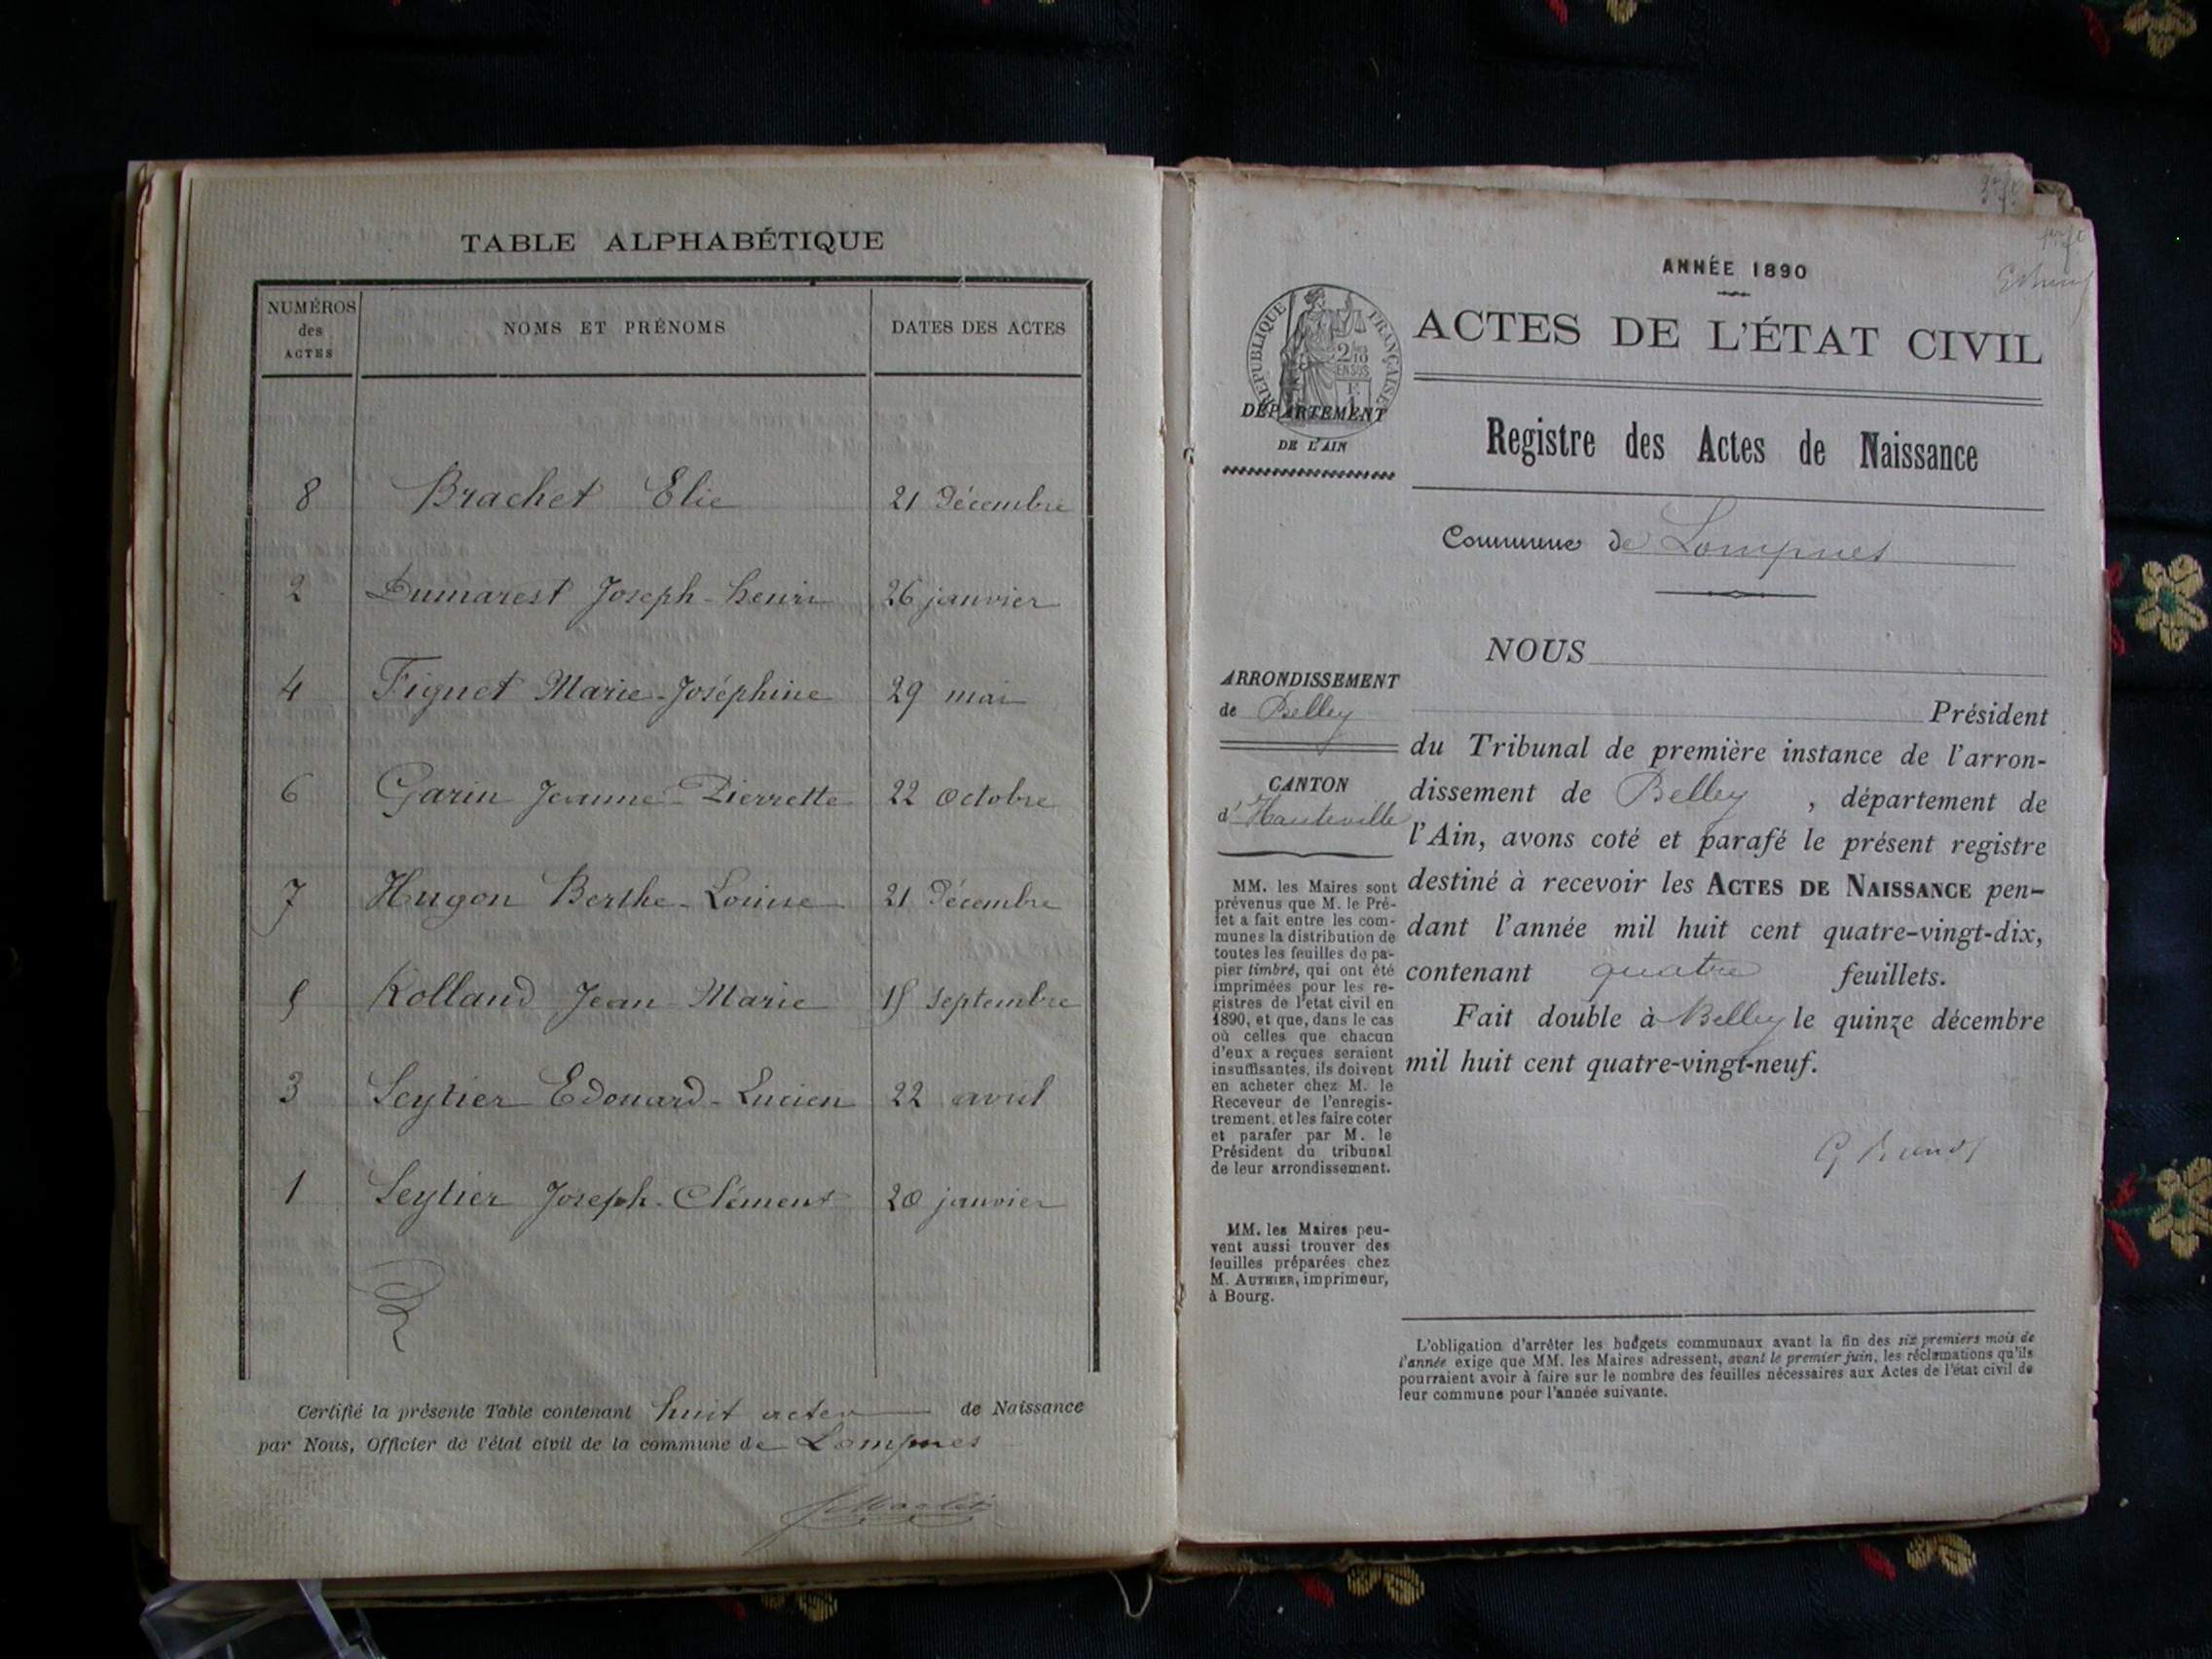 TABLE ALPHABÉTIQUE
NUMÉROS
des
ACTES
NOMS ET PRÉNOMS
DATES DES ACTES
8 Brachet Elie 21 Décembre
2 Dumarest Joseph-henri 26 janvier
4 Figuet Marie-Joséphine 29 mai
6 Garin Jeanne-Pierrette 22 octobre
7 Hugon Berthe-Louise 21 Décembre
5 Rolland Jean-Marie 15 septembre
3 Seytier Edouard-Lucien 22 avril
1 Seytier Joseph-Clément 20 janvier
Certifié la présente Table contenant huit actes de Naissance
par Nous, Officier de l'état civil de la commune de Lompnes
ANNÉE 1890
ACTES DE L'ÉTAT CIVIL
RÉPUBLIQUE FRANÇAISE
DÉPARTEMENT
DE L'AIN
Registre des Actes de Naissance
Commune de Lompnes
NOUS
ARRONDISSEMENT
de Belley
CANTON
d'Hauteville
MM. les Maires sont
prévenus que M. le Pré-
fet a fait entre les com-
munes la distribution de
toutes les feuilles de pa-
pier timbré, qui ont été
imprimées pour les re-
gistres de l'état civil en
1890, et que, dans le cas
où celles que chacun
d'eux a reçues seraient
insuffisantes, ils doivent
en acheter chez M. le
Receveur de l'enregis-
trement, et les faire coter
et parafer par M. le
Président du tribunal
de leur arrondissement.
MM. les Maires peu-
vent aussi trouver des
feuilles préparées chez
M. AUTHIER, imprimeur,
à Bourg.
Président
du Tribunal de première instance de l'arron-
dissement de Belley, département de
l'Ain, avons coté et parafé le présent registre
destiné à recevoir les ACTES DE NAISSANCE pen-
dant l'année mil huit cent quatre-vingt-dix,
contenant quatre feuillets.
Fait double à Belley le quinze décembre
mil huit cent quatre-vingt-neuf.
L'obligation d'arrêter les budgets communaux avant la fin des six premiers mois de
l'année exige que MM. les Maires adressent, avant le premier juin, les réclamations qu'ils
pourraient avoir à faire sur le nombre des feuilles nécessaires aux Actes de l'état civil de
leur commune pour l'année suivante.